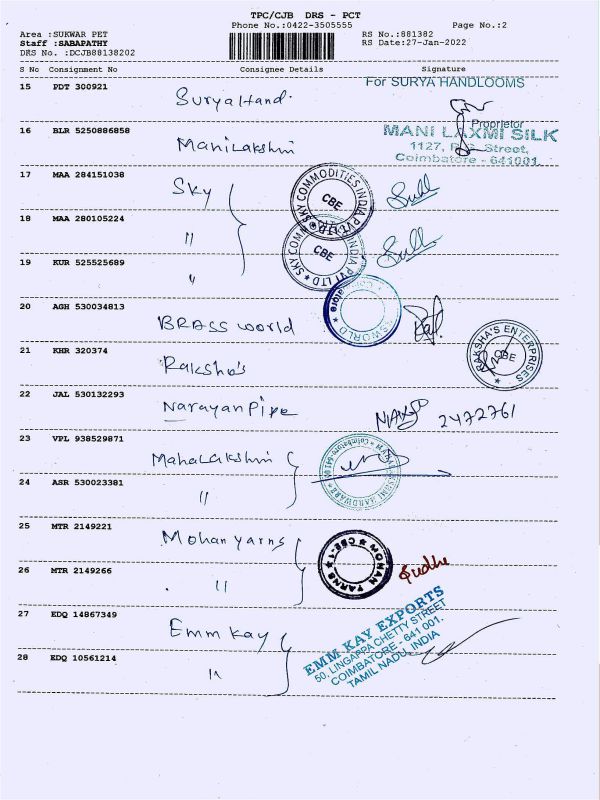 TPC/CJB DRS - PCT
Phone No.:0422-3505555 Page No.:2
Area :SUKWAR PET RS No.:881382
Staff :SABAPATHY RS Date:27-Jan-2022
DRS No. :DCJB88138202
S No Consignment No Consignee Details Signature
15 PDT 300921 Surya Hand. For SURYA HANDLOOMS
Proprietor
16 BLR 5250886858 Manilakshmi MANI LAXMI SILK
1127, Street,
Coimbatore - 641001.
17 MAA 284151038 Sky SKY COMMODITIES INDIA PVT LTD CBE
18 MAA 280105224 " SKY COMM INDIA PVT LTD CBE
19 KUR 525525689 "
20 AGH 530034813 BRASS world
21 KHR 320374 Raksha's RAKSHA'S ENTERPRISES CBE
22 JAL 530132293 Narayan Pipe 2472761
23 VPL 938529871 Mahalakshmi HARDWARE
24 ASR 530023381 "
25 MTR 2149221 Mohan yarns MOHAN YARNS CBE-1
26 MTR 2149266 " Sudha
27 EDQ 14867349 Emm kay EMM KAY EXPORTS
50, LINGAPPA CHETTY STREET
COIMBATORE - 641 001.
TAMIL NADU, INDIA
28 EDQ 10561214 "